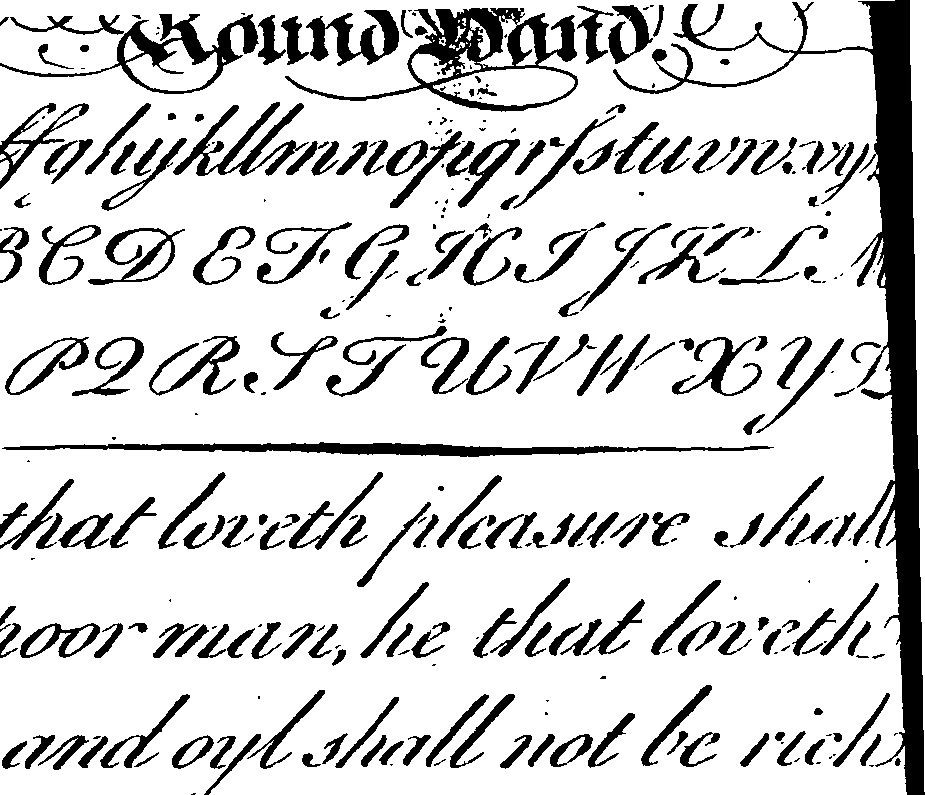 Round Hand.
ffghijkllmnopqrſstuvwxyz
B C D E F G H I J K L M
P Q R S T U V W X Y Z
that loveth pleasure shall
poor man, he that loveth
and oyl shall not be rich.